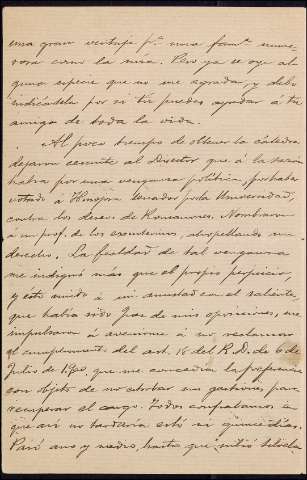 una gran ventaja pª. una famª. nume-
rosa como la mia. Pero ya se oye al-
guna especie que no me agrada, y debo
indicártela por si tú puedes ayudar á tu
amigo de toda la vida.
Al poco tiempo de obtener la cátedra
dejaron cesante al Director que á la sazón
había por una venganza política, por haber
votado á Hinojosa senador por la Universidad,
contra los deseos de Romanones. Nombraron
á un prof. de los excedentes, atropellando mi
derecho. La fealdad de tal venganza
me indignó más que el propio perjuicio,
y esto unido á mi amistad con el saliente,
que había sido Juez de mis oposiciones, me
impulsaron á avenirme á no reclamar
el cumplimiento del art. 18 del R. D. de 6 de
Julio de 1900, que me concedía la preferencia
con objeto de no estorbar sus gestiones para
recuperar el cargo. Todos confiábamos en
que así no tardaría esto ni quince días.
Pasó año y medio, hasta que